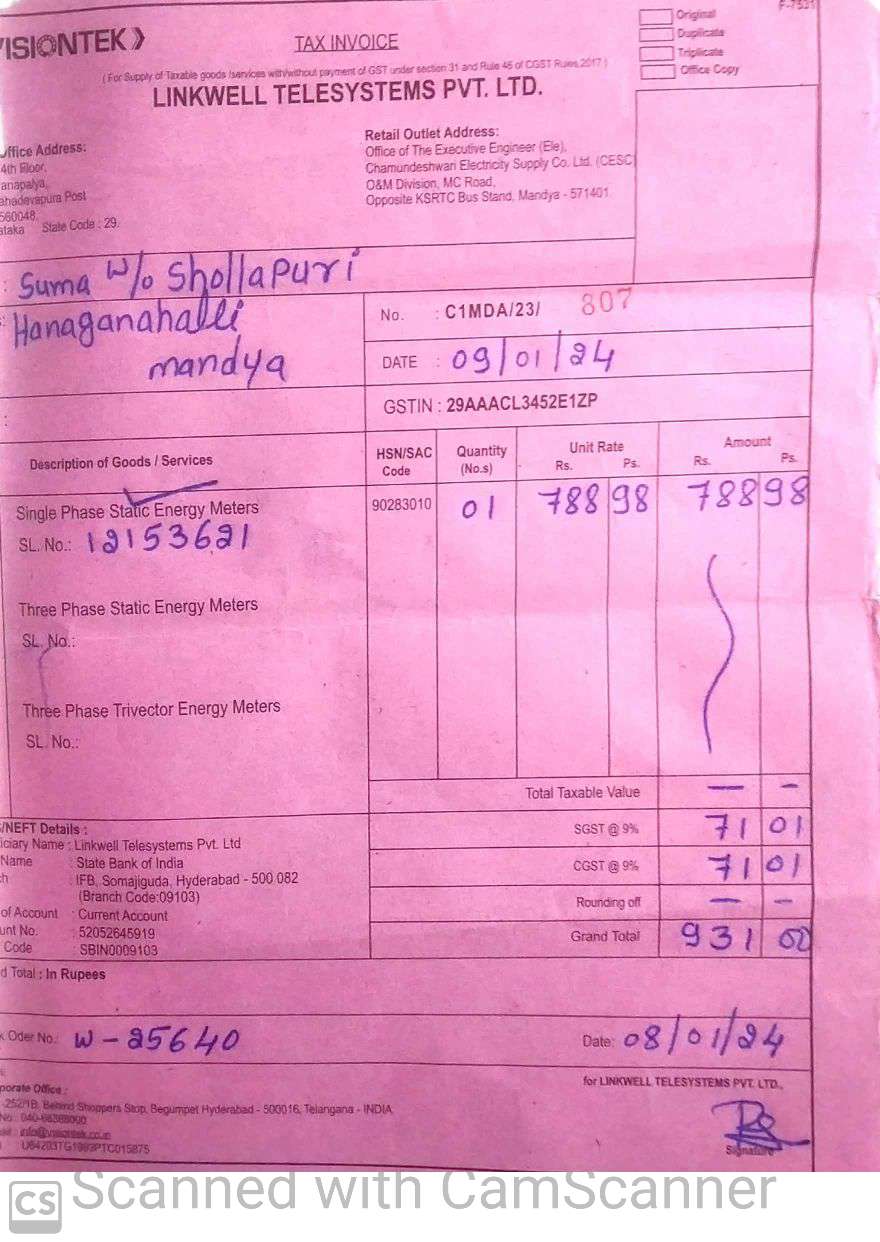 VISIONTEK
TAX INVOICE
F-7521
Original
Duplicate
Triplicate
Office Copy
( For Supply of Taxable goods /services with/without payment of GST under section 31 and Rule 46 of CGST Rules,2017 )
LINKWELL TELESYSTEMS PVT. LTD.
Office Address:
4th Floor,
anapalya,
ahadevapura Post
560048,
ataka State Code : 29.
Retail Outlet Address:
Office of The Executive Engineer (Ele),
Chamundeshwari Electricity Supply Co. Ltd. (CESC)
O&M Division, MC Road,
Opposite KSRTC Bus Stand, Mandya - 571401.
: Suma w/o Shollapuri
: Hanaganahalli
mandya
No. : C1MDA/23/ 807
DATE : 09/01/24
GSTIN : 29AAACL3452E1ZP
Description of Goods / Services
HSN/SAC Code
Quantity (No.s)
Unit Rate
Rs. Ps.
Amount
Rs. Ps.
Single Phase Static Energy Meters 90283010 01 788 98 788 98
SL. No.: 12153621
Three Phase Static Energy Meters
SL. No.:
Three Phase Trivector Energy Meters
SL. No.:
Total Taxable Value — -
SGST @ 9% 71 01
CGST @ 9% 71 01
Rounding off — -
Grand Total 931 00
/NEFT Details :
iciary Name : Linkwell Telesystems Pvt. Ltd
Name : State Bank of India
h : IFB, Somajiguda, Hyderabad - 500 082
(Branch Code:09103)
of Account : Current Account
unt No. : 52052645919
Code : SBIN0009103
d Total : In Rupees
k Oder No.: W - 25640
Date: 08/01/24
porate Office :
-252/1B, Behind Shoppers Stop, Begumpet Hyderabad - 500016, Telangana - INDIA
No : 040-66388000
ail : info@visiontek.co.in
U64203TG1993PTC015875
for LINKWELL TELESYSTEMS PVT. LTD.,
Signature
CS Scanned with CamScanner